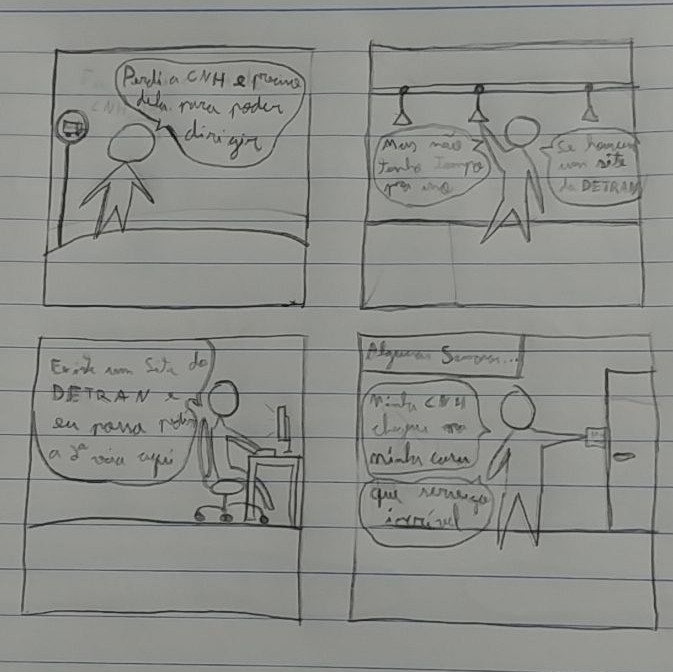 Perdi a CNH e preciso
dela para poder
dirigir
Mas não
tenho tempo
pra isso
Se houvesse
um site
do DETRAN
Existe um Site do
DETRAN e
eu posso pedir
a 2ª via aqui
Algumas Semanas...
Minha CNH
chegou na
minha casa
que serviço
incrível